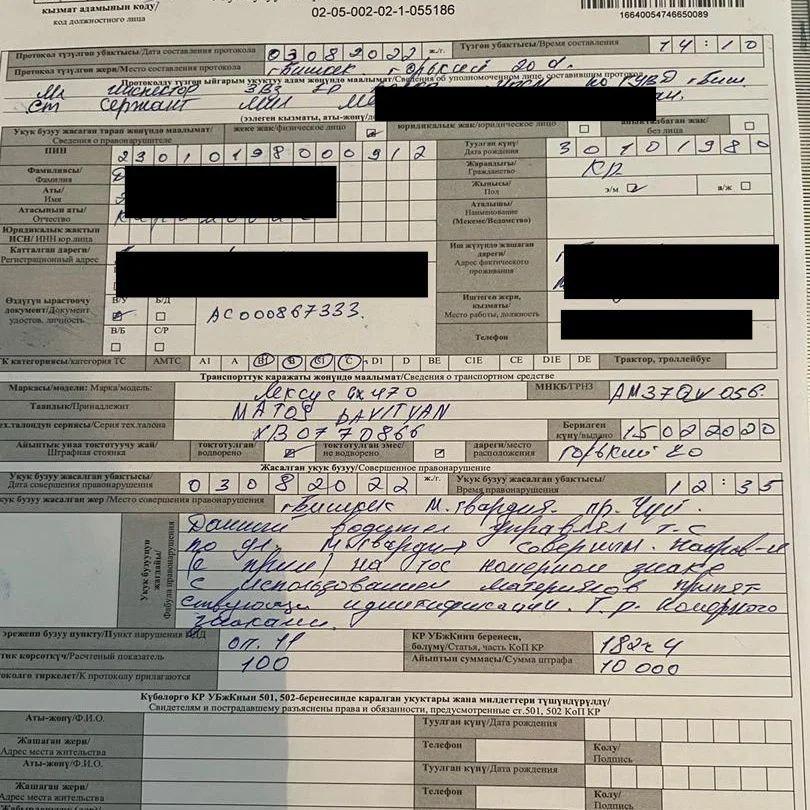 кызмат адамынын коду/
код должностного лица
02-05-002-02-1-055186
16640054746650089
Протокол түзүлгөн убактысы/Дата составления протокола 03082022 ж./г. Түзгөн убактысы/Время составления 14:10
Протокол түзүлгөн жери/Место составления г. Бишкек
Протоколду түзгөн ыйгарым укуктуу адам жөнүндө маалымат/Сведения об уполномоченном лице, составившим протокол
Мл инспектор
ст сержант мил
(ээлеген кызматы, аты-жөнү/
Укук бузуу жасаган тарап жөнүндө маалымат/
Сведения о правонарушителе
жеке жак/физическое лицо
юридикалык жак/юридическое лицо
аныкталбаган жак/
без лица
ПИН 23010198000912
Туулган күнү/
Дата рождения 30101980
Фамилиясы/
Фамилия
Жарандыгы/
Гражданство КР
Аты/
Имя
Жынысы/
Пол э/м а/ж
Атасынын аты/
Отчество
Аталышы/
Наименование
(Мекеме/Ведомство)
Юридикалык жактын
ИСН/ ИНН юр.лица
Катталган дареги/
Регистрационный адрес
Иш жүзүндө жашаган
дареги/
Адрес фактического
проживания
Өздүгүн ырастоочу
документ/Документ
удостов. личность
В/У Б/Д
В/Б С/Р
АС000867333.
Иштеген жери,
кызматы/
Место работы, должность
Телефон
ТК категориясы/категория ТС АМТС A1 A B1 B C1 C D1 D BE C1E CE D1E DE Трактор, троллейбус
Транспорттук каражаты жөнүндө маалымат/Сведения о транспортном средстве
Маркасы/модели: Марка/модель: Лексус GX 470 МНКБ/ГРНЗ
Таандык/Принадлежит MATOS DAVITYAN
тех.талондун сериясы/Серия тех.талона Берилген
күнү/выдано 15022020
Айыптык унаа токтотуучу жай/
Штрафная стоянка
токтотулган/
водворено
токтотулган эмес/
не водворено
дареги/место
расположения Горький 20
Жасалган укук бузуу/Совершенное правонарушение
Укук бузуу жасалган убактысы/
Дата совершения правонарушения 03082022 ж./г. Укук бузуу жасалган убактысы/
Время правонарушения 12:35
Укук бузуу жасалган жер /Место совершения правонарушения г. Бишкек М. гвардия. пр. Чуй.
Укук бузуунун
жагдайы/
Фабула правонарушения
Данный водител управлял т-с
по ул. М. гвардия
на гос номерном знаке
с использованием материалов препят
ствующи идентификации. Г.р. номерного
знаками.
эрежени бузуу пункту/Пункт нарушения ПДД оп. 11
КР УБжКнин беренеси,
бөлүмү/Статья, часть КоП КР 182ч 4
тик көрсөткүч/Расчетный показатель 100
Айыптын суммасы/Сумма штрафа 10 000
токолго тиркелет/К протоколу прилагаются
Күбөлөргө КР УБжКнын 501, 502-беренесинде каралган укуктары жана милдеттери түшүндүрүлдү/
Свидетелям и пострадавшему разъяснены права и обязанности, предусмотренные ст.501, 502 КоП КР
Аты-жөнү/Ф.И.О. Туулган күнү/Дата рождения
Жашаган жери/
Адрес места жительства
Телефон Колу/
Подпись
Аты-жөнү/Ф.И.О. Туулган күнү/Дата рождения
Жашаган жери/
Адрес места жительства
Телефон Колу/
Подпись